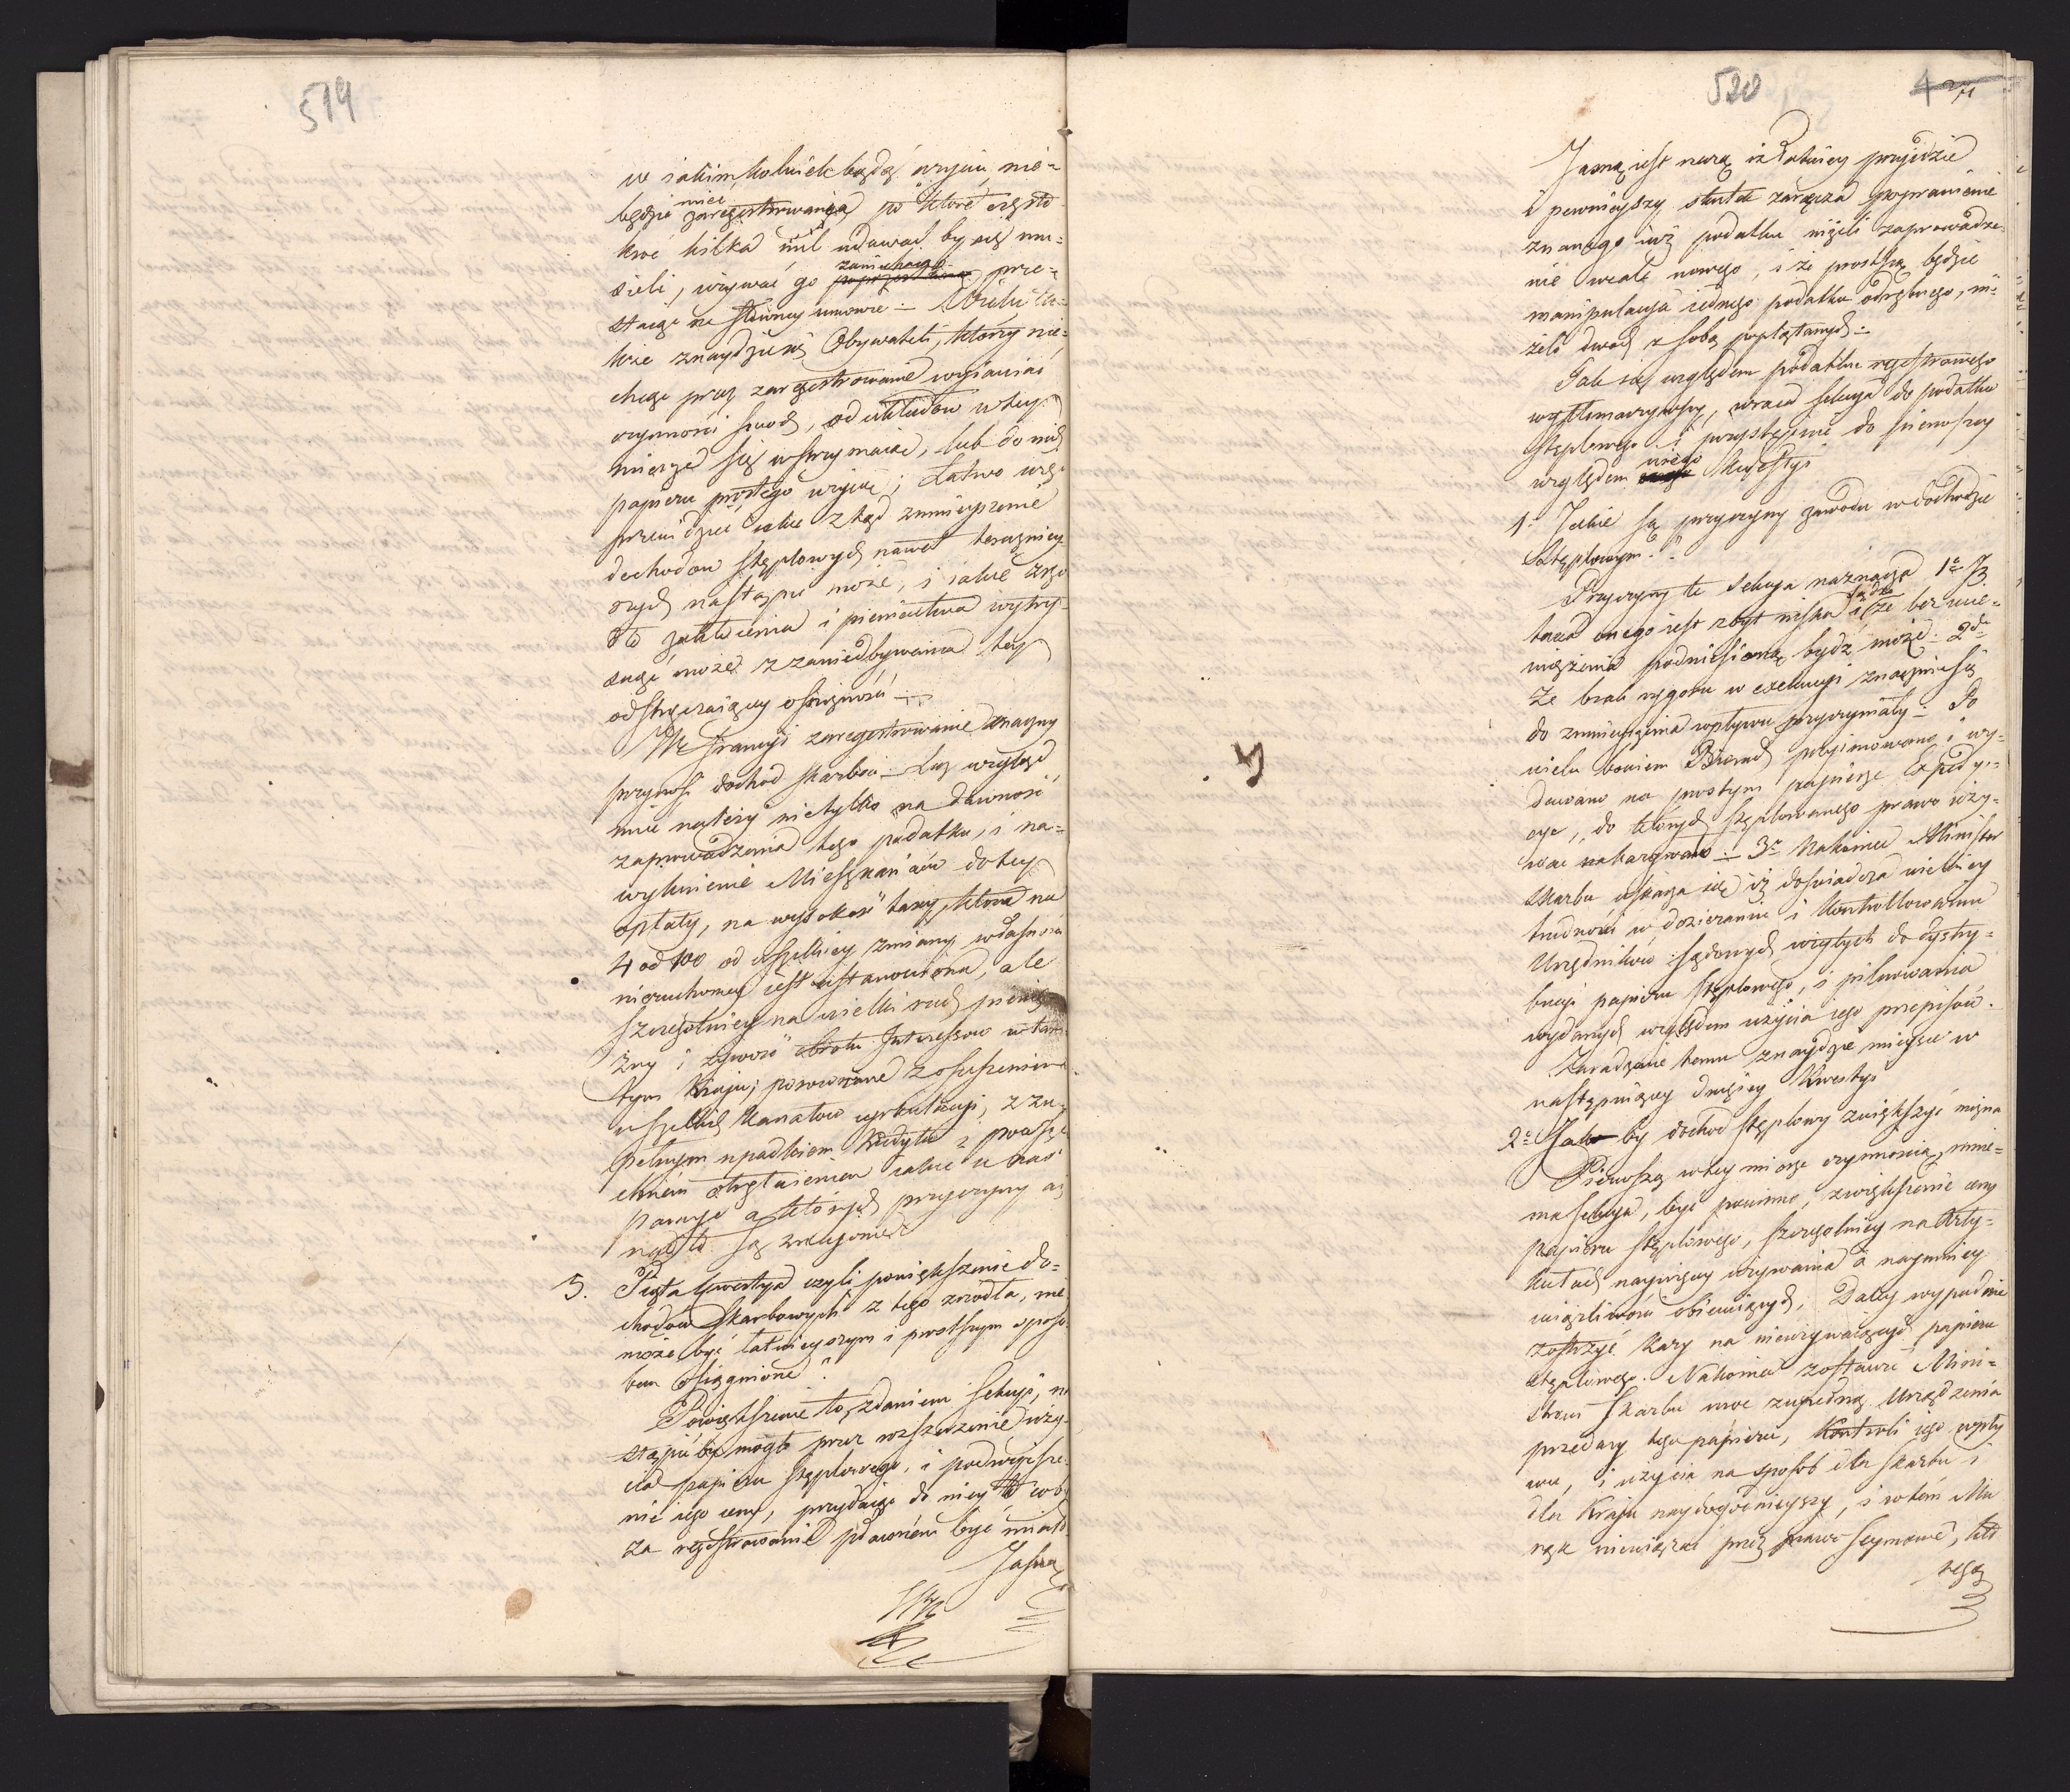 519
w jakim kolwiek bądź życiu, nie=
będzie mieć zaregestrowania po które często
kroć kilka mil udawać by się mu=
sieli, używać go zaniechają prze=
stając na słowney umowie — Wielu ta=
kże znaydzie się Obywateli, którzy nie=
chcąc przez zaregestrowanie wyjawiać
czynności swoich, od układów w tey
mierze się wstrzymaią, lub do nich
papieru prostego użyią; Łatwo więc
przewidzieć iakie ztąd zmnieyszenie
dochodów stęplowych nawet terazniey
szych nastąpić może, i iakie zrzó
dło zakłócenia i pieniactwa wytry=
snąć może z zaniedbywania tey
odstręczaiącey ostrożności —
We Francyi zaregestrowanie znaczny
przynosi dochód skarbowi — Lecz wzgląd
mieć należy nietylko na dawność
zaprowadzenia tego podatku, i na=
wyknienie Mieszkańców do tey
opłaty, na wysokość taxy, która na
4 od 100 od wszelkiey zmiany własności
nieruchomey iest ustanowiona, ale
szczególniey na wielki ruch pienię
żny i żywość obrotu Interessow w tam
tym Kraju; porównane z osuszeniem
wszelkich Kanałow cyrkulacyi, z zu=
pełnym upadkiem Kredytu i powsze
chnem otrętwieniem iakie u nas
panuje a których przyczyny aż
nadto są znajome
5. Piąta kwestya czyli powiększenie do=
chodów Skarbowych z tego zrzódła, nie
może być łatwieyszym i prostszym sposo
bem osiągnione?
Powiększenie to, zdaniem Sekcyi, na
stąpić by mogło przez rozszerzenie uży=
cia papieru stęplowego, i podwyższe=
nie iego ceny, przydaiąc do niey to coby
za regestrowanie płaconem być miało
Jasną
520
Jasną iest rzeczą iż łatwiey przyidzie
i pewnieyszy skutek zaręcza poprawienie
znanego iuż podatku niżeli zaprowadze
nie wcale nowego, i że prostszą będzie
manipulacya iednego podatku odrębnego, ni=
żeli dwóch z sobą poplątanych —
Tak się względem podatku regestrowego
wytłomaczywszy, wraca Sekcya do podatku
stęplowego i przystępuie do pierwszey
względem niego Kwestyi
1. Jakie są przyczyny zawodu w dochodzie
Stęplowym?
Przyczyny te Sekcya naznacza 1o Iż
taxa onego iest zbyt niska i że bez ucie=
mięzenia podniesioną bydź może. 2do
Ze brak rygoru w exekucyi znacznie się
do zmnieyszenia wpływu przyczyniały — Po
wielu bowiem Biorach przyimowano i wy=
dawano na prostym papierze Expedy=
cye, do których stęplowanego prawo uży=
wać nakazywało — 3o Nakoniec Minister
Skarbu uskarża się iż doświadcza wielkiey
trudności w dozieraniu i Kontrollowaniu
Urzędników sądowych użytych do dystry=
bucyi papieru stęplowego, i pilnowania
wydanych względem użycia iego przepisów.
Zaradzenie temu znaydzie mieysce w
następuiącey drugiey Kwestyi
2o Jak by dochód stęplowy zwiększyć można
Pierwszą w tey mierze czynnością, mnie=
ma Sekcya, być powinno, zwiększenie ceny
papieru stęplowego, szczególniey na Arty=
kułach naywięcey używania a naymniey
uciążliwości obiecuiących; Daley wypadnie
zostrzyć kary na nieużywaiących papieru
stęplowego. Nakoniec zostawić Mini=
strowi Skarbu moc zupełną urządzenia
przedaży tego papieru, Kontroli iego wpły
wu, i użycia na sposób dla Skarbu i
dla Kraju naydogodnieyszy, i w tem Mu
rąk niewiązać przez prawo seymowe, któ